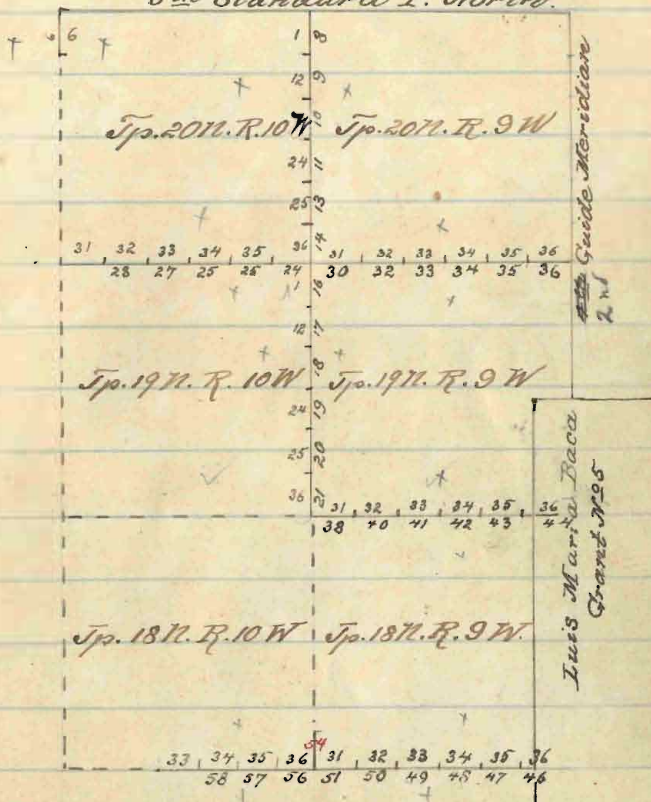 5th Standard P. North.
6 6 1 8
12 9
Tp. 20 N. R. 10 W 10 Tp. 20 N. R. 9 W
24 11
25 13
36 14
31 32 33 34 35 31 32 33 34 35 36
28 27 25 26 24 30 32 33 34 35 36
1 16
12 17
18
Tp. 19 N. R. 10 W Tp. 19 N. R. 9 W
24 19
25 20
36 21
31 32 33 34 35 36
38 40 41 42 43 44
Tp. 18 N. R. 10 W Tp. 18 N. R. 9 W.
54
33 34 35 36 31 32 33 34 35 36
58 57 56 51 50 49 48 47 46
Guide Meridian
2nd
Luis Maria Baca
Grant No 5